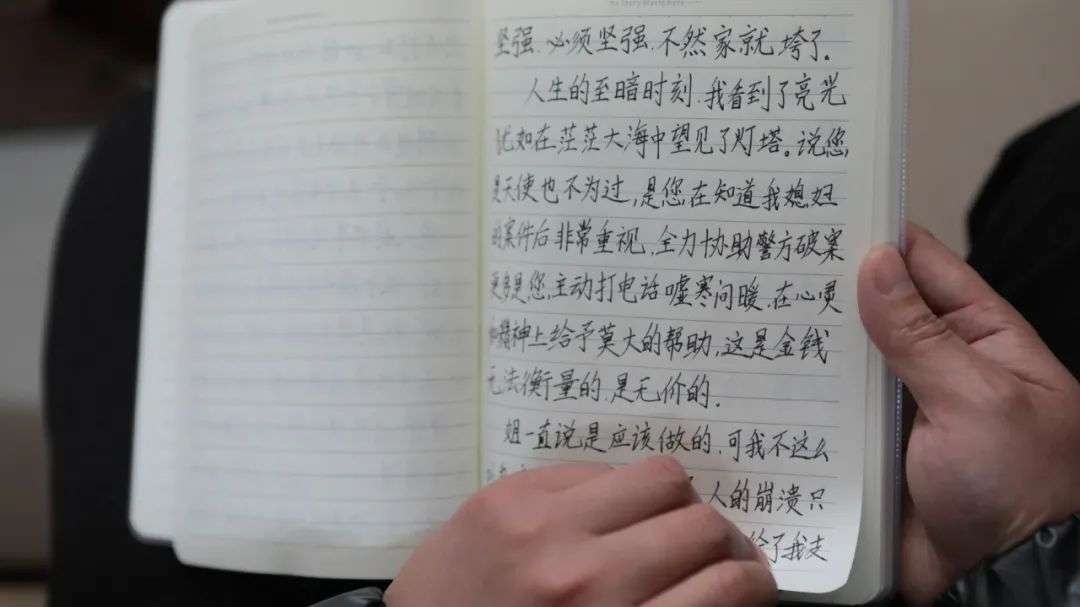 坚强、必须坚强、不然家就垮了.
人生的至暗时刻,我看到了亮光
犹如在茫茫大海中望见了灯塔。说您
是天使也不为过,是您在知道我媳妇
的案件后非常重视、全力协助警方破案
更多是您,主动打电话嘘寒问暖、在心灵
和精神上给予莫大的帮助,这是金钱
无法衡量的、是无价的.
姐一直说是应该做的、可我不这么
人的崩溃只
给了我支